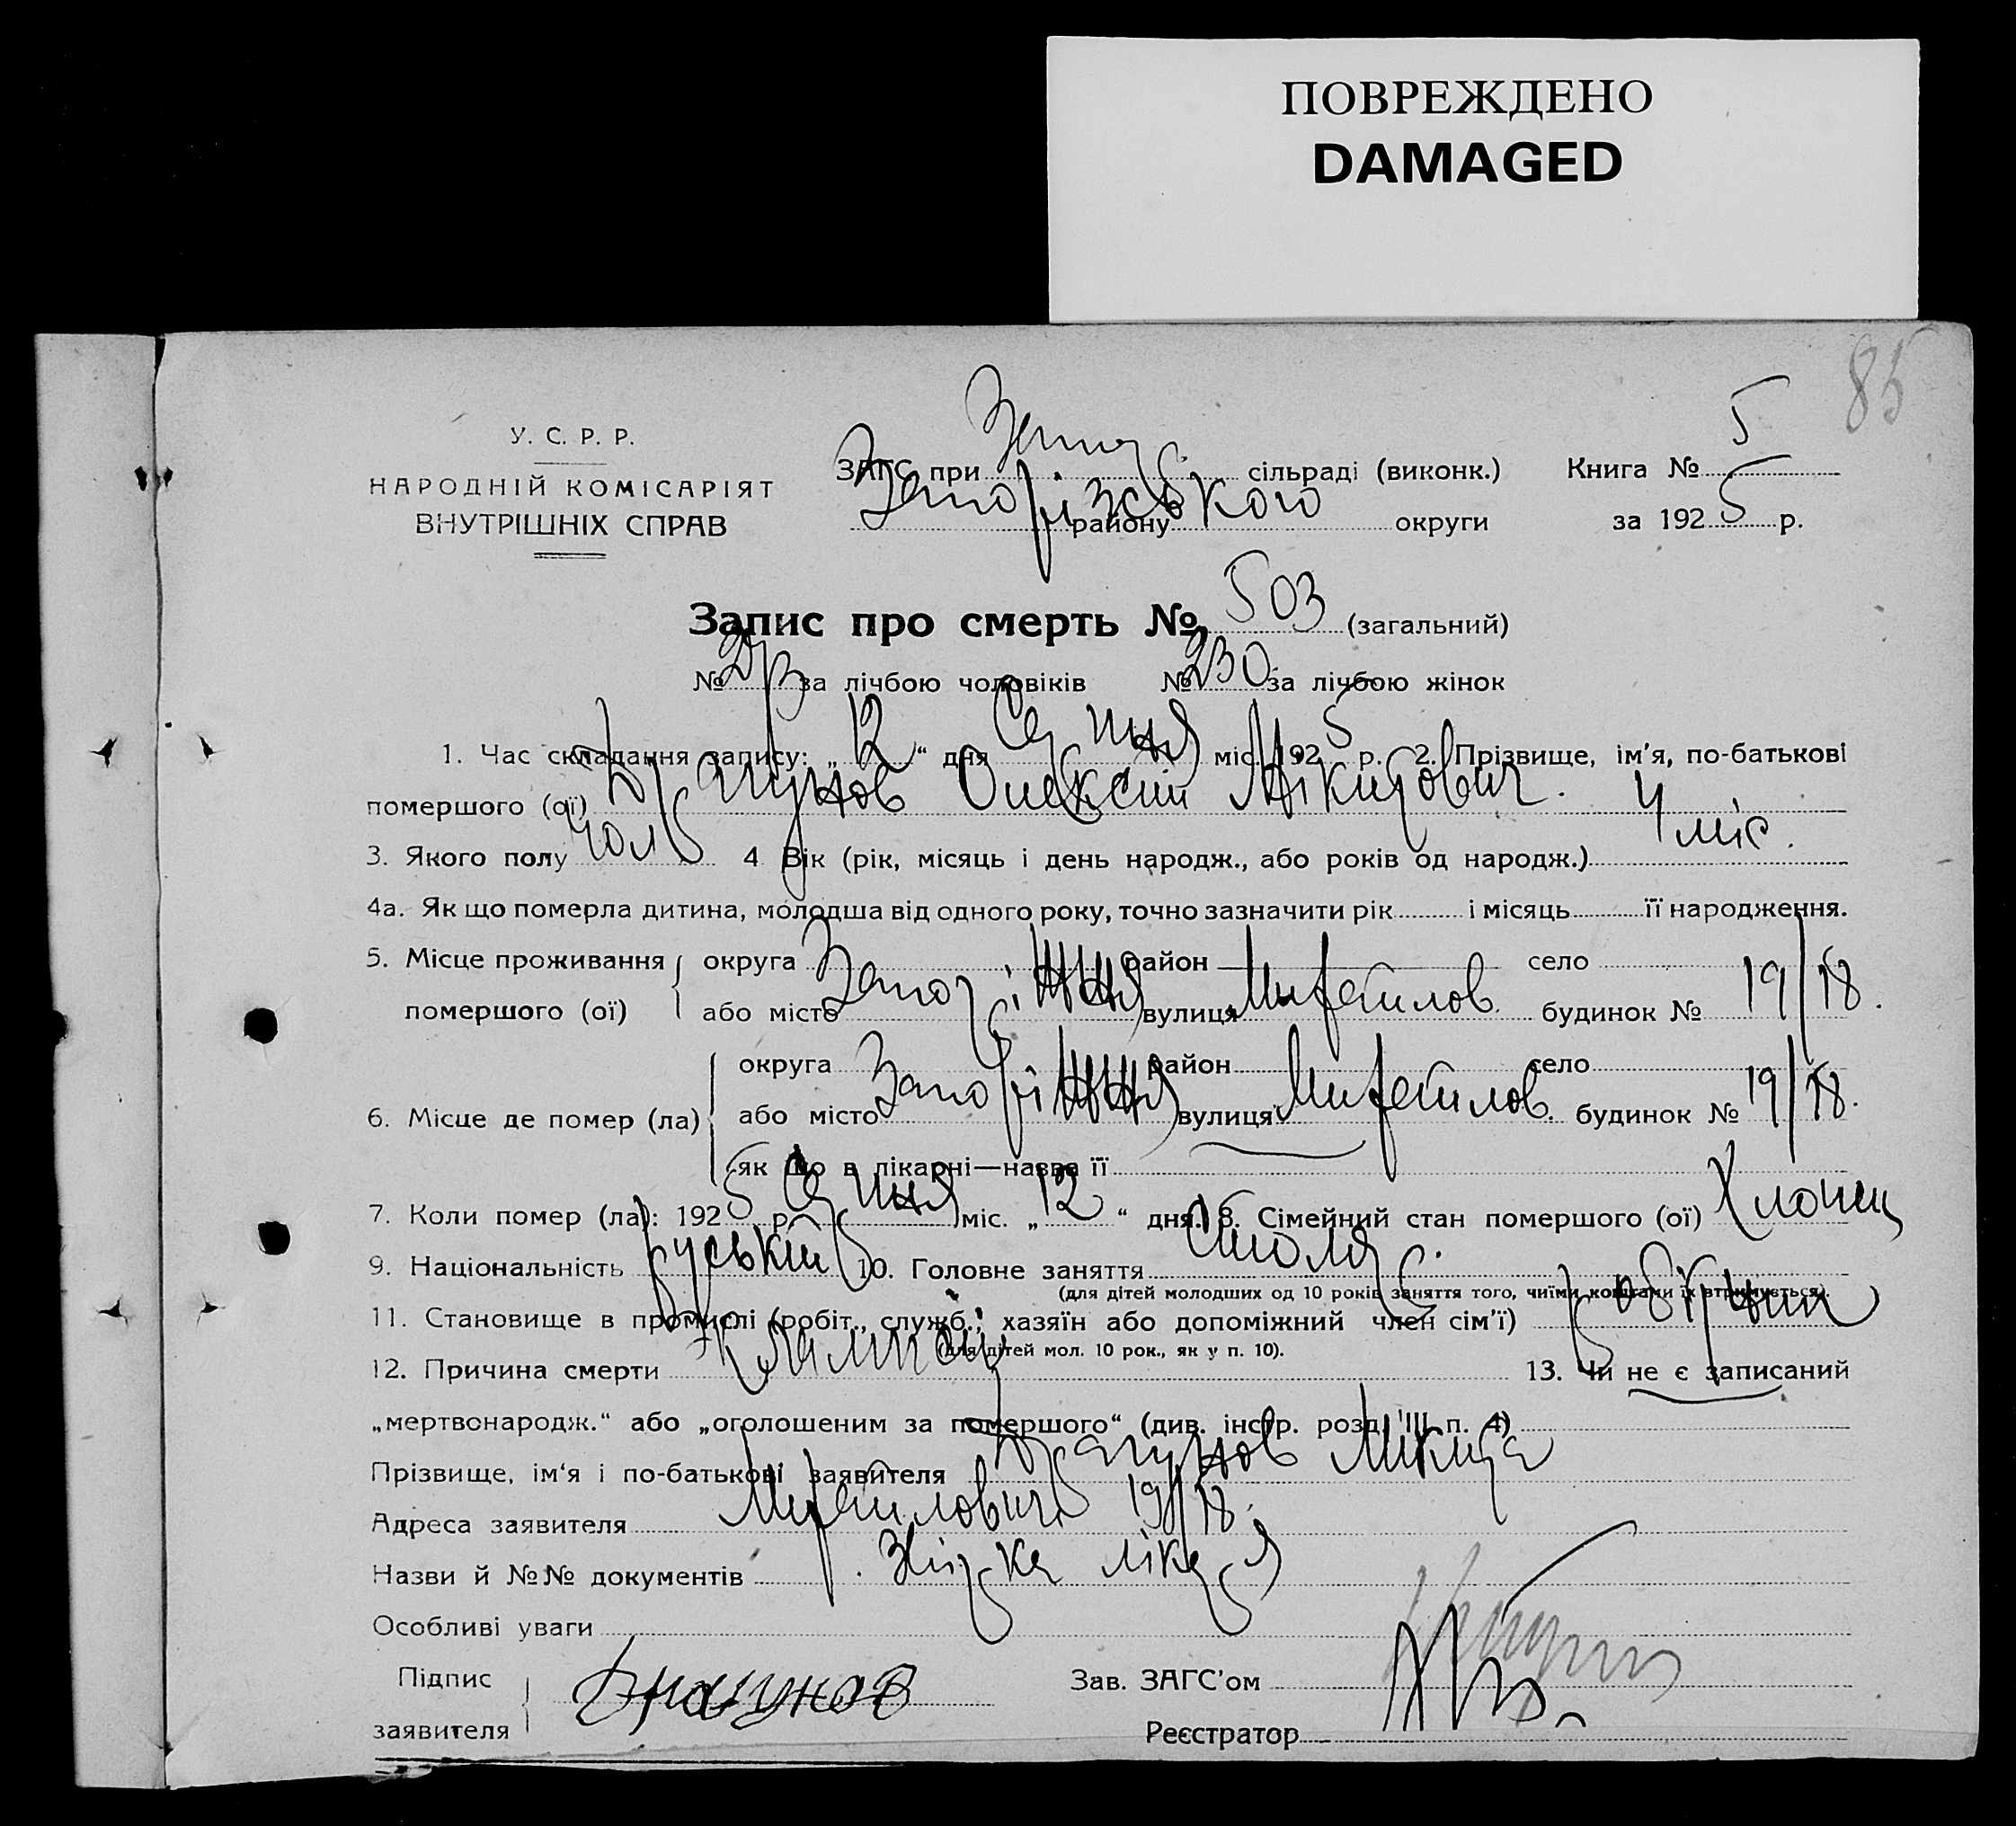 ПОВРЕЖДЕНО
DAMAGED
85
У. С. Р. Р.
НАРОДНІЙ КОМІСАРІЯТ
ВНУТРІШНІХ СПРАВ
ЗАГС при сільраді (виконк.)
Запорізського району округи
Книга № 5
за 1925 р.
Запис про смерть № 503 (загальний)
№ за лічбою чоловіків № 230 за лічбою жінок
1. Час складання запису: „12“ дня Серпня міс. 1925 р. 2. Прізвище, ім'я, по-батькові
помершого (ої) Драгунов Олексій Мікитович. 4 міс.
3. Якого полу чол 4 Вік (рік, місяць і день народж., або років од народж.)
4а. Як що померла дитина, молодша від одного року, точно зазначити рік і місяць її народження.
5. Місце проживання помершого (ої) округа район село
або місто Запоріжжя вулиця будинок № 19/18.
6. Місце де помер (ла) округа район село
або місто Запоріжжя вулиця будинок № 19/18.
як що в лікарні—назва її
7. Коли помер (ла): 1925 р. Серпня міс. „12“ дня. 8. Сімейний стан помершого (ої) Хлопец
9. Національність руський 10. Головне заняття Столяр.
(для дітей молодших од 10 років заняття того, чиїми коштами їх втримується).
11. Становище в промислі (робіт., служб., хазяїн або допоміжний член сім'ї) робітник
(для дітей мол. 10 рок., як у п. 10).
12. Причина смерти 13. Чи не є записаний
„мертвонародж.“ або „оголошеним за помершого“ (див. інстр. розд. III п. 4)
Прізвище, ім'я і по-батькові заявителя Драгунов Мікита
Адреса заявителя 19/18.
Назви й №№ документів Звідка лікаря
Особливі уваги
Підпис заявителя Драгунов
Зав. ЗАГС'ом
Реєстратор